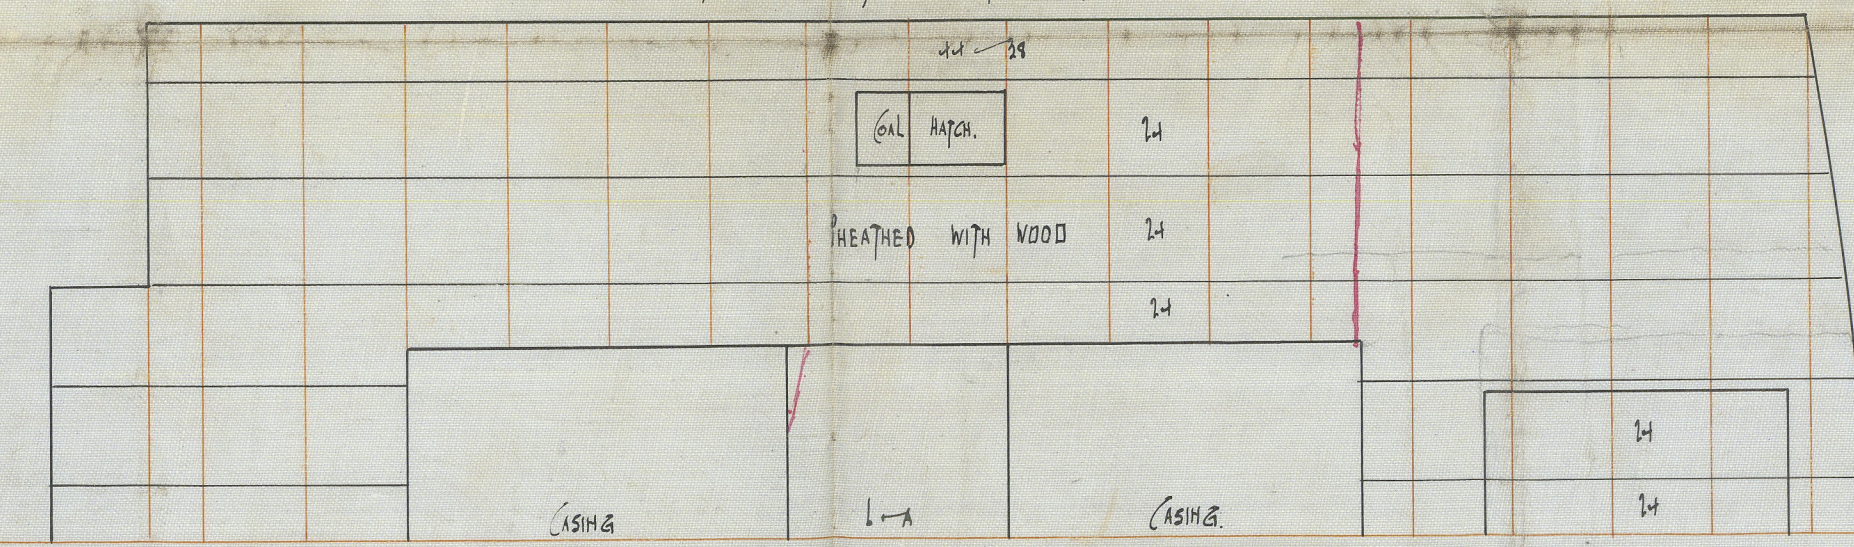 COAL HATCH.
24
SHEATHED WITH WOOD
24
24
24
CASING
CASING.
24